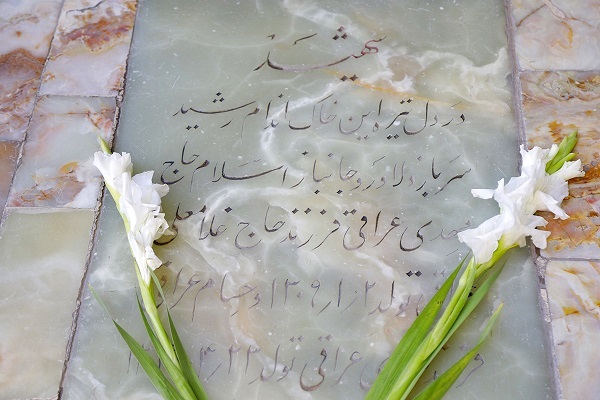 شهید
در دل تیره این خاک اندام رشید
سرباز دلاور و جانباز اسلام حاج
مهدی عراقی فرزند حاج غلامعلی
تولد ۱۳۰۹/۱۰/۲ و حسام
عراقی تولد